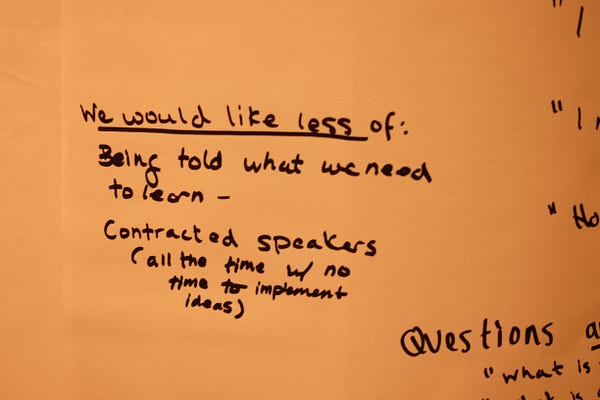 We would like less of:
Being told what we need
to learn –
Contracted speakers
(all the time w/ no
time to implement
ideas)
"
"I
"
Questions
"what is
"what is